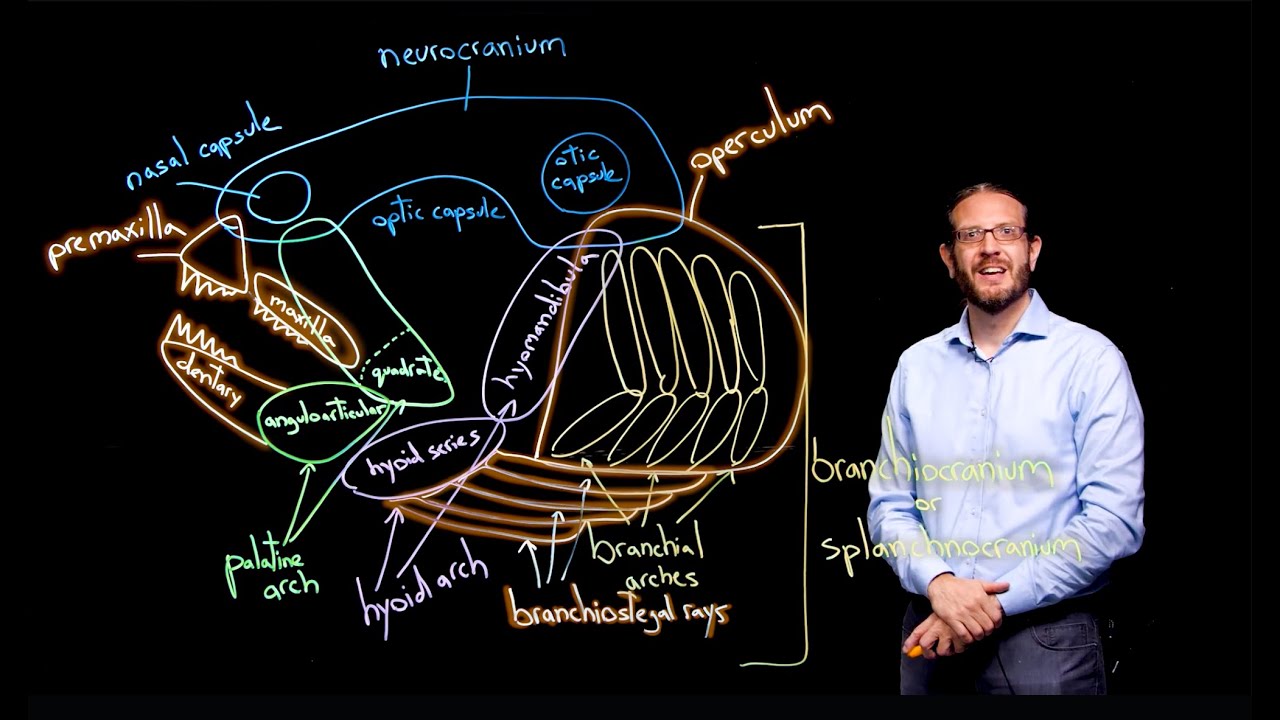 neurocranium
nasal capsule
otic
capsule
operculum
optic capsule
premaxilla
maxilla
hyomandibula
quadrate
dentary
anguloarticular
hyoid series
branchiocranium
or
splanchnocranium
palatine
arch
hyoid arch
branchial
arches
branchiostegal rays